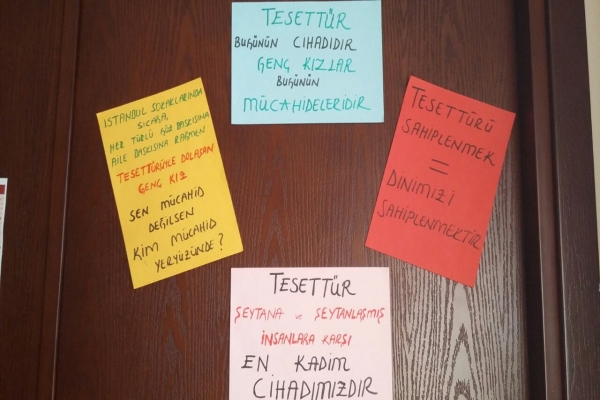 TESETTÜR
BUGÜNÜN CİHADIDIR
GENÇ KIZLAR
BUGÜNÜN
MÜCAHİDELERİDİR
İSTANBUL SOKAKLARINDA
SICAĞA,
HER TÜRLÜ GÖZ BASKISINA
AİLE BASKISINA RAĞMEN
TESETTÜRÜYLE DOLAŞAN
GENÇ KIZ
SEN MÜCAHİD
DEĞİLSEN
KİM MÜCAHİD
YERYÜZÜNDE?
TESETTÜRÜ
SAHİPLENMEK
=
DİNİMİZİ
SAHİPLENMEKTİR
TESETTÜR
ŞEYTANA VE ŞEYTANLAŞMIŞ
İNSANLARA KARŞI
EN KADİM
CİHADIMIZDIR